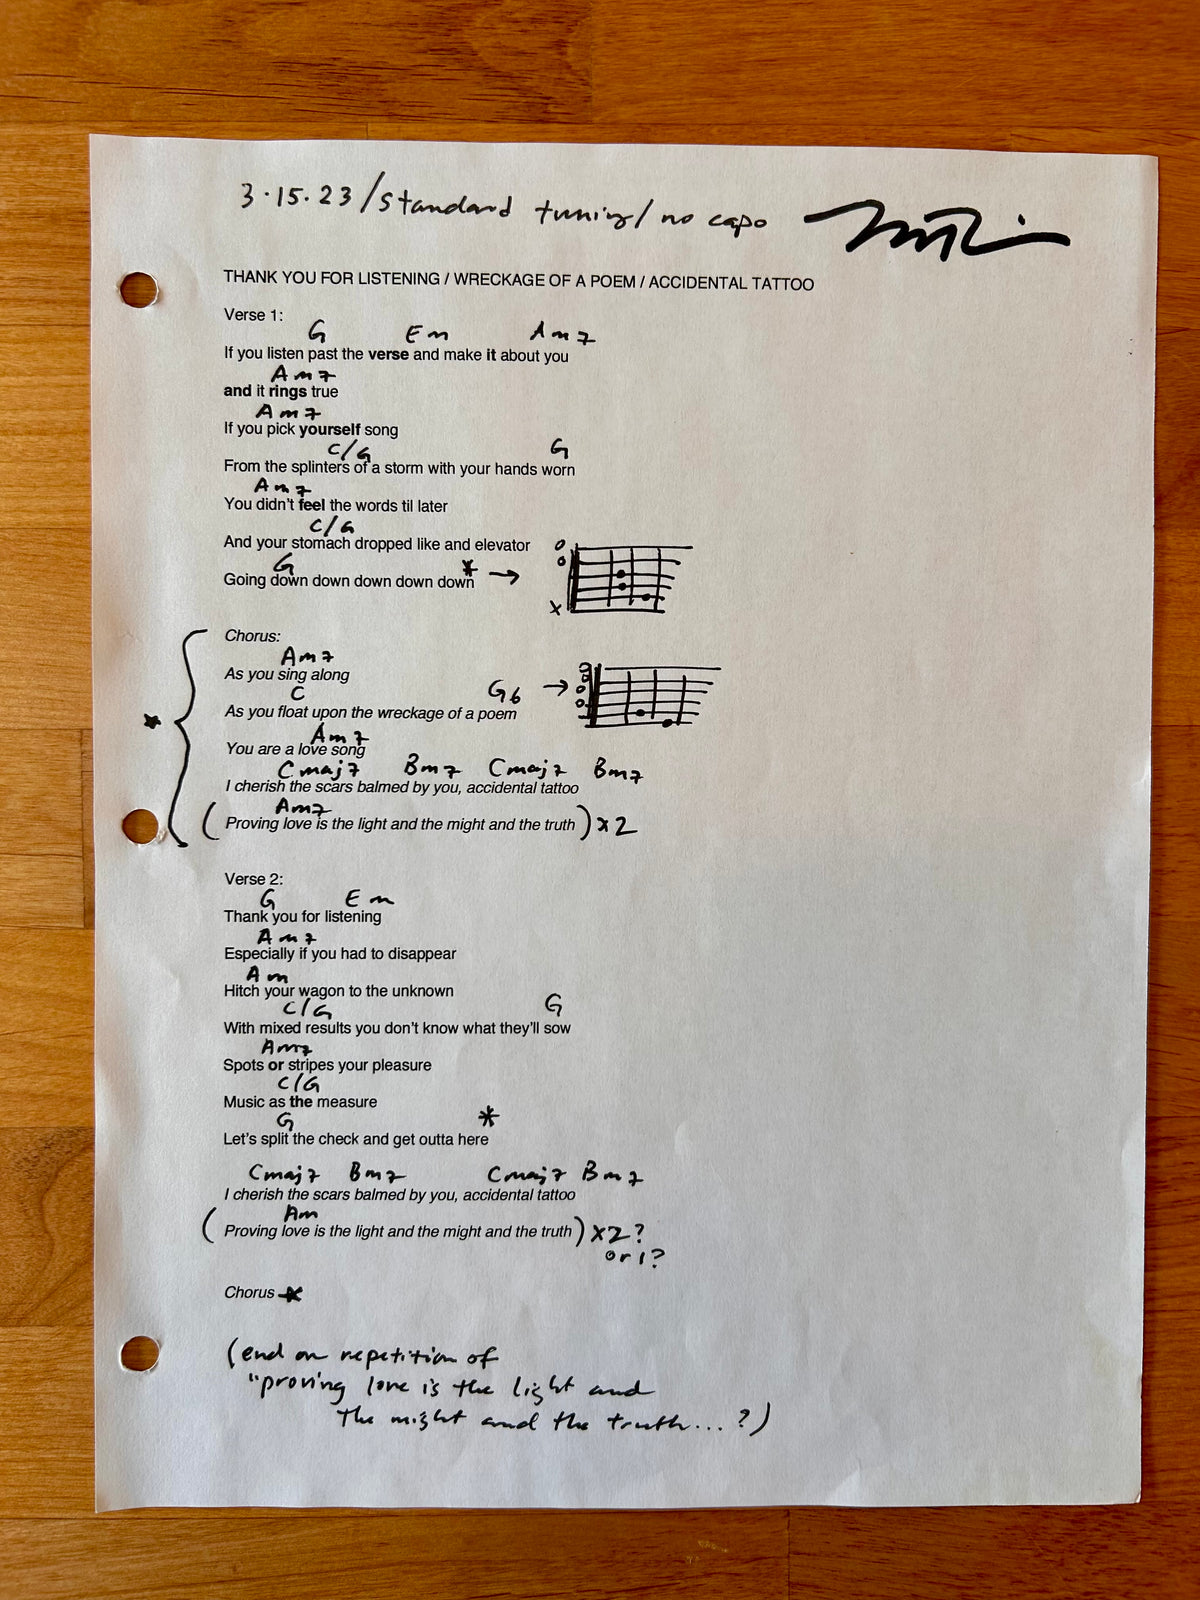 3.15.23/standard tuning/no capo
THANK YOU FOR LISTENING / WRECKAGE OF A POEM / ACCIDENTAL TATTOO
Verse 1:
G Em Am7
If you listen past the verse and make it about you
Am7
and it rings true
Am7
If you pick yourself song
C/G G
From the splinters of a storm with your hands worn
Am7
You didn't feel the words til later
C/G
And your stomach dropped like and elevator
G *
Going down down down down down →
Chorus:
Am7
As you sing along
C G6 →
As you float upon the wreckage of a poem
Am7
You are a love song
Cmaj7 Bm7 Cmaj7 Bm7
I cherish the scars balmed by you, accidental tattoo
Am7
(Proving love is the light and the might and the truth) x2
Verse 2:
G Em
Thank you for listening
Am7
Especially if you had to disappear
Am
Hitch your wagon to the unknown
C/G G
With mixed results you don't know what they'll sow
Am7
Spots or stripes your pleasure
C/G
Music as the measure
G *
Let's split the check and get outta here
Cmaj7 Bm7 Cmaj7 Bm7
I cherish the scars balmed by you, accidental tattoo
Am
(Proving love is the light and the might and the truth) x2?
or 1?
Chorus ★
(end on repetition of
"proving love is the light and
the might and the truth...?)